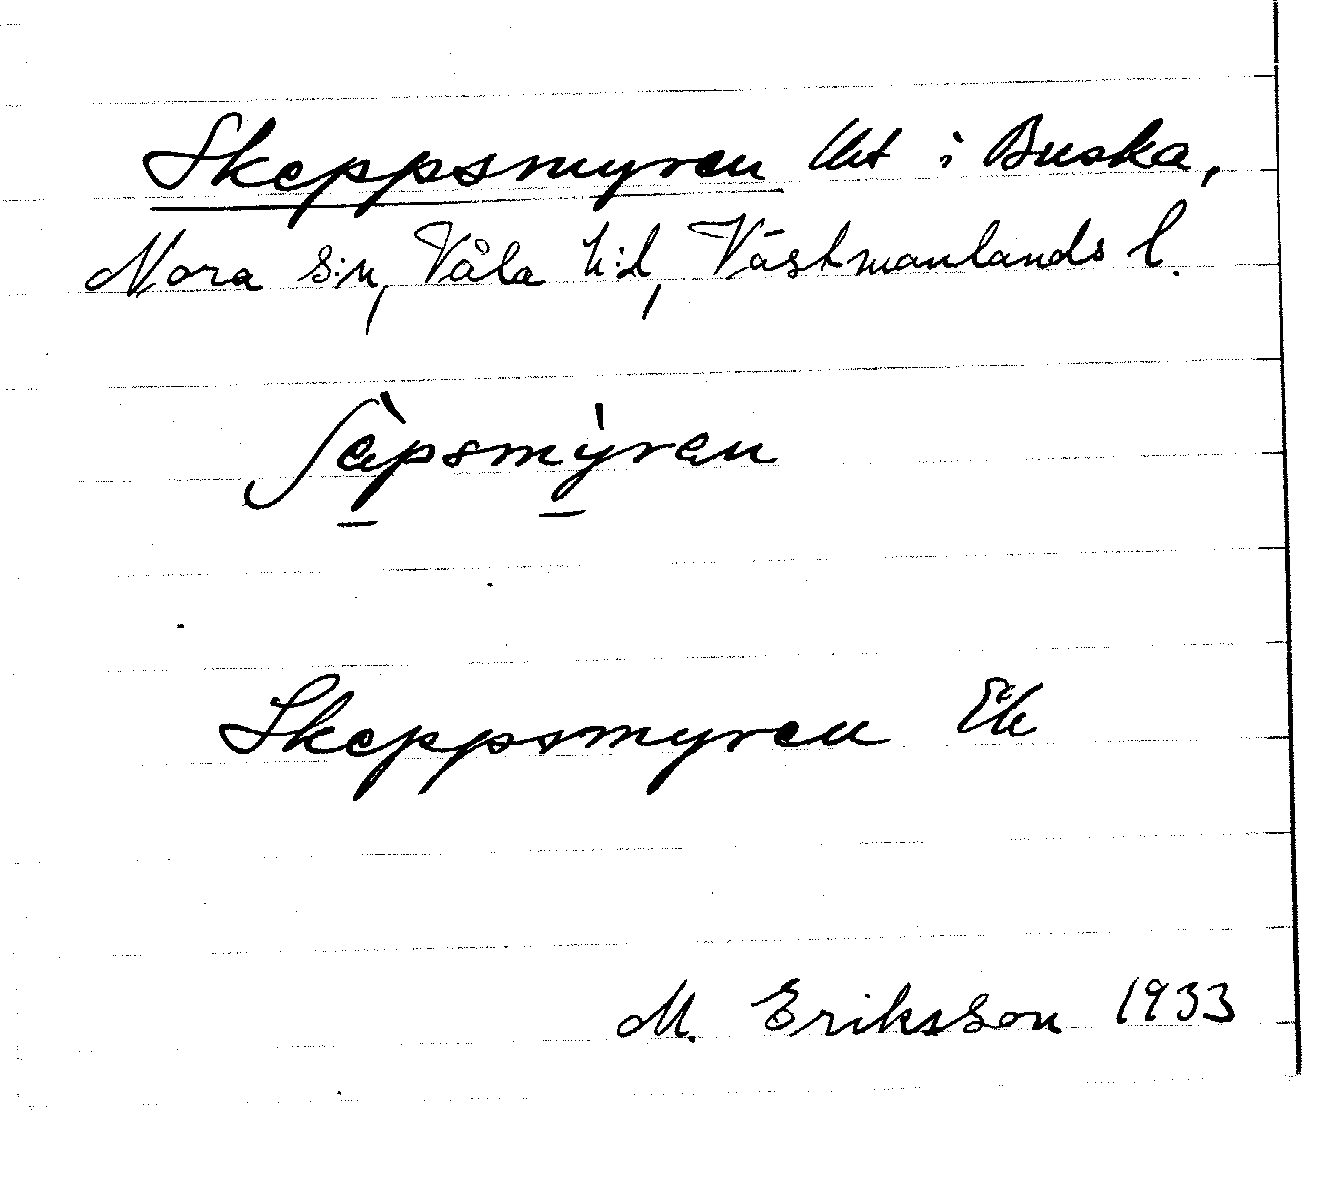 Skeppsmyren i Buska,
Nora s:n, Våla h:d, Västmanlands l.
ʃèpsmýren
Skeppsmyren Ek
M. Eriksson 1933